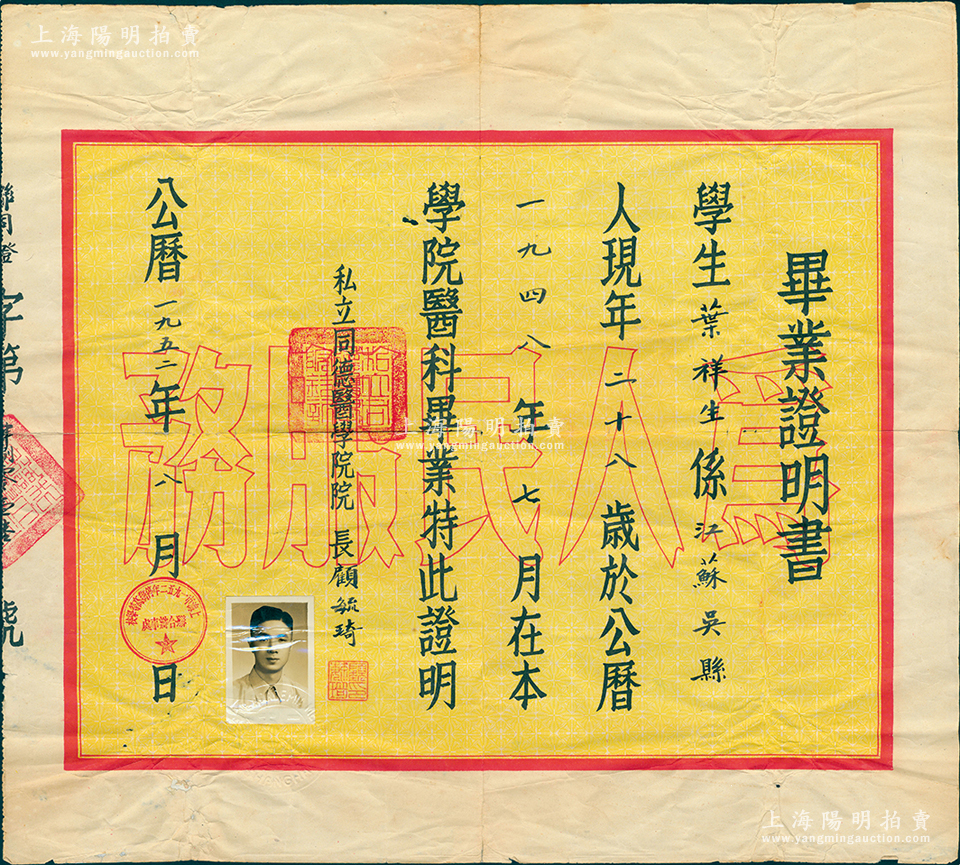 上海陽明拍賣
www.yangmingauction.com
畢業證明書
學生葉祥生係江蘇吳縣
人現年二十八歲於公曆
一九四八年七月在本
學院醫科畢業特此證明
私立同德醫學院院長顧毓琦
公曆一九五二年八月日
為人民服務
聯合辦事處
字第
號
上海陽明拍賣
www.yangmingauction.com
上海陽明拍賣
www.yangmingauction.com